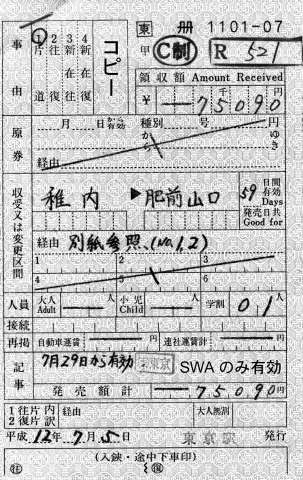 東 冊 1101-07
事由
①片道 2往復 3新在往 4新在復
コピー
甲 C制 R 521
領収額 Amount Received
¥ 千 円
75090
原券
月 日から有効 種別 号 円
から ゆき
経由
収受又は変更区間
稚内 ▶ 肥前山口
59 日間有効 Days
発売日共 Good for
経由 別紙参照、(No.1、2)
1 2 3
4 5 6
人員 大人 Adult 人 小児 Child 人 学割 0.1人
接続
再掲 自動車運賃 円 連社運賃計 円
記事
7月29日から有効 東京 SWAのみ有効
発売額計 75090円
1往片内
2復片訳
経由 大人無割
平成12年7月5日 東京駅 発行
(入鋏・途中下車印)